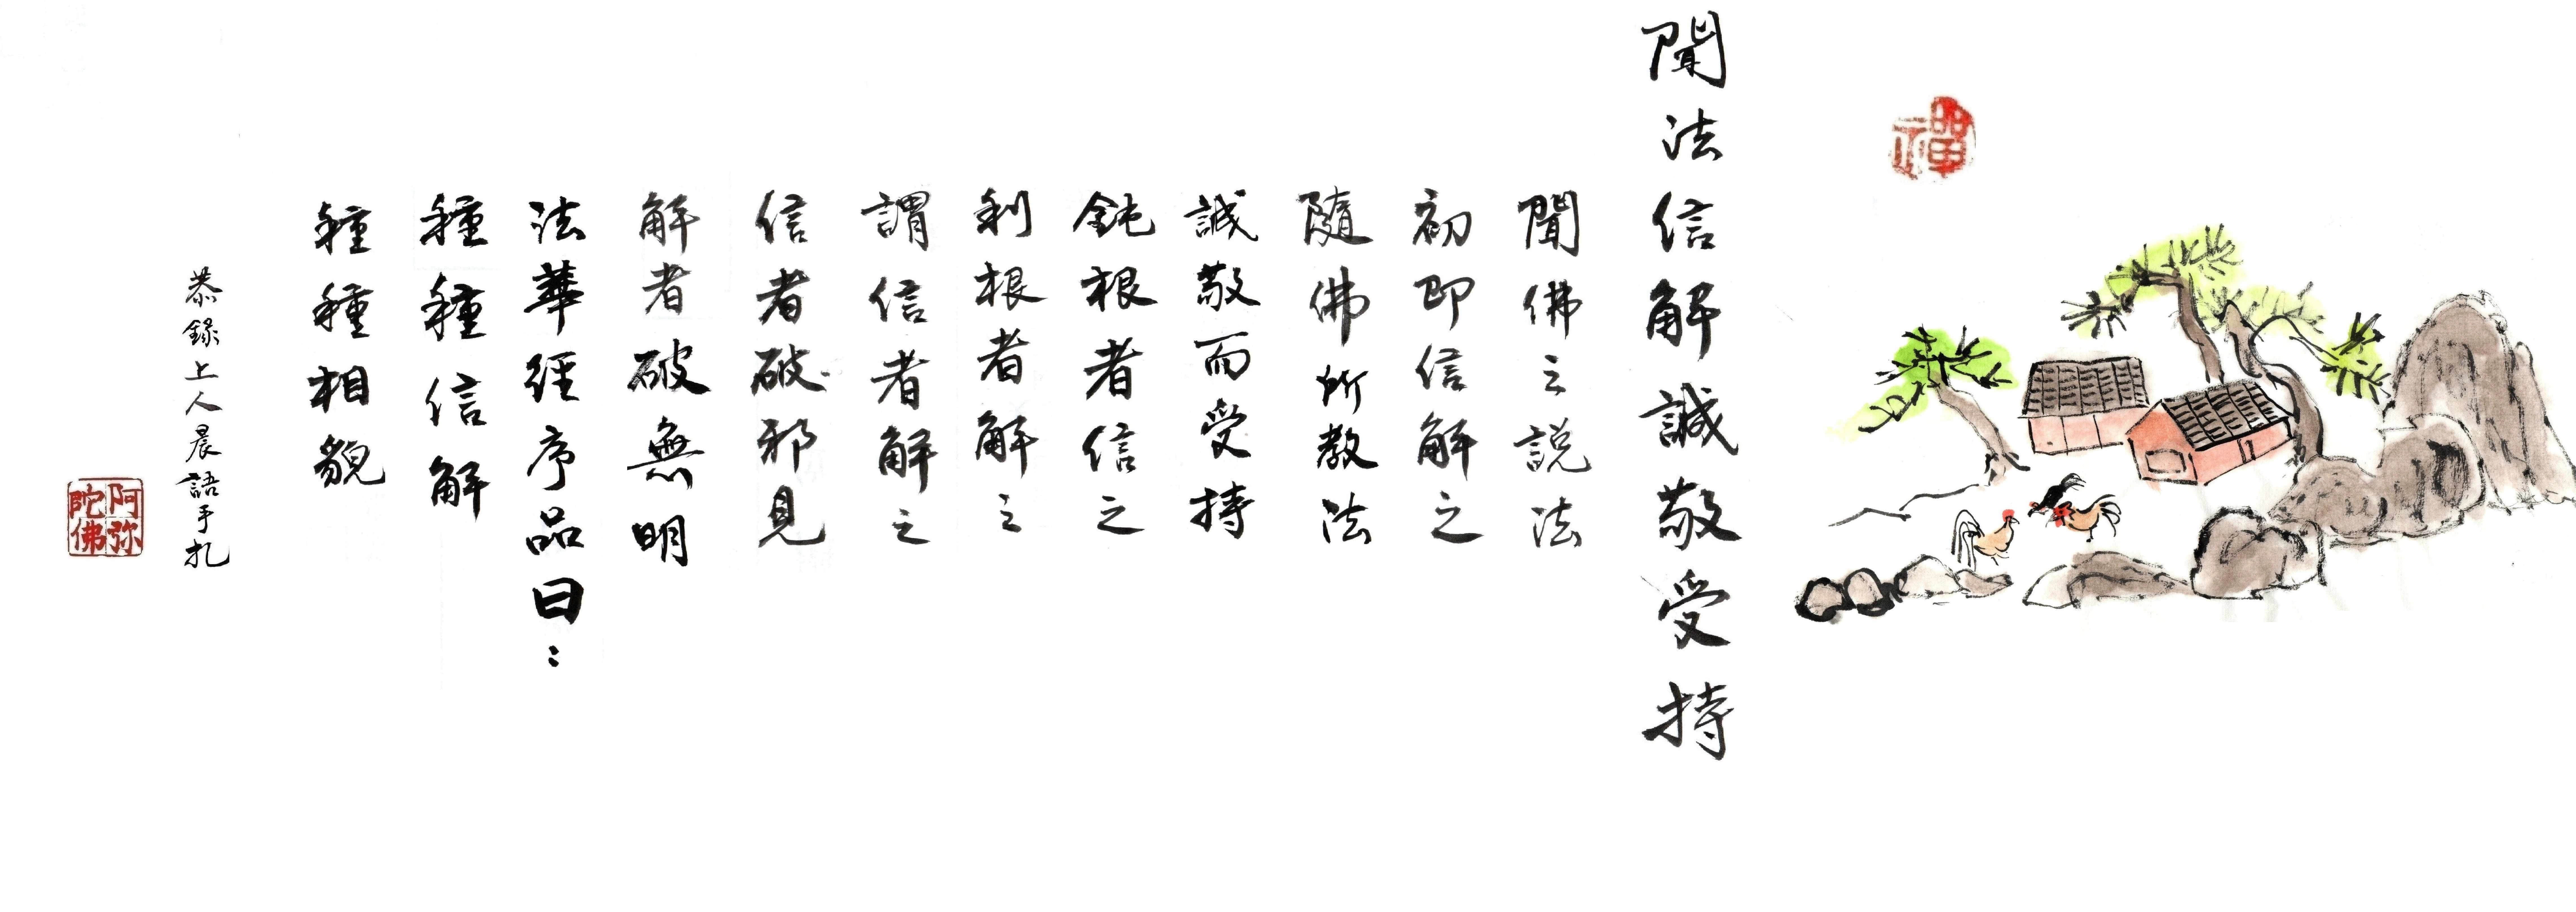 禪
聞法信解誠敬受持
聞佛之説法
初即信解之
隨佛所教法
誠敬而受持
鈍根者信之
利根者解之
謂信者解之
信者破邪見
解者破無明
法華經序品曰：
種種信解
種種相貌
恭錄上人晨語手扎
阿弥
陀佛